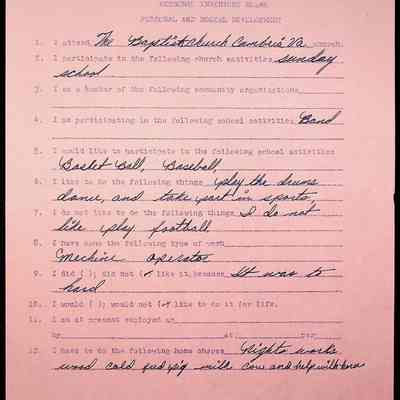 PERSONAL INVENTORY BLANK
PERSONAL AND SOCIAL DEVELOPMENT
1. I attend The Baptist Church Cambria Va. church.
2. I participate in the following church activities sunday
school
3. I am a member of the following community organizations
4. I am participating in the following school activities Band
5. I would like to participate in the following school activities
Basket Ball, Baseball,
6. I like to do the following things play the drums
dance, and take part in sports,
7. I do not like to do the following things I do not
like play football
8. I have done the following type of work
Machine operator
9. I did ( ); did not (✓ like it, because It was to
hard
10. I would ( ); would not (✓ like to do it for life.
11. I am at present employed as
by at per
12. I have to do the following home chores Nights works
wood cold fed pig milk cow and help with